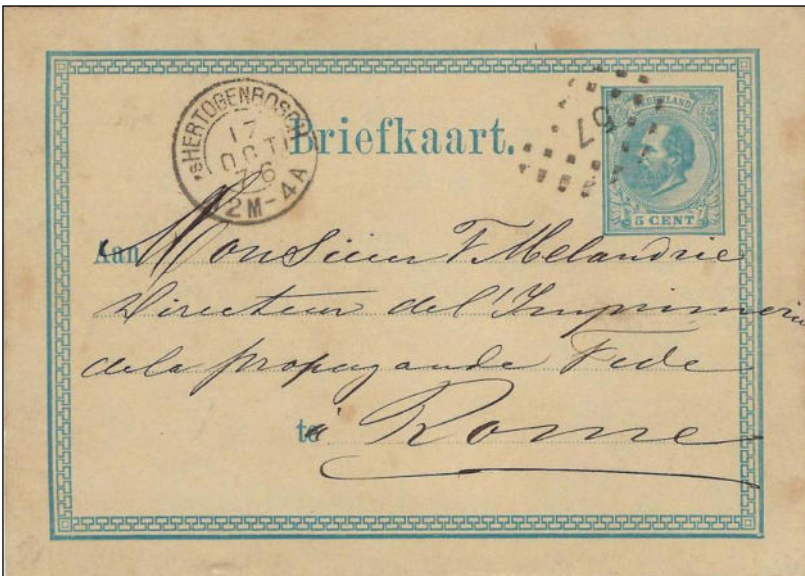 'sHERTOGENBOSCH
17
OCT
76
12M-4A
Briefkaart.
57
NEDERLAND
5 CENT
Aan Monsieur F Melandrie
Directeur del'Imprimerie
dela propagande Fede
te à Rome